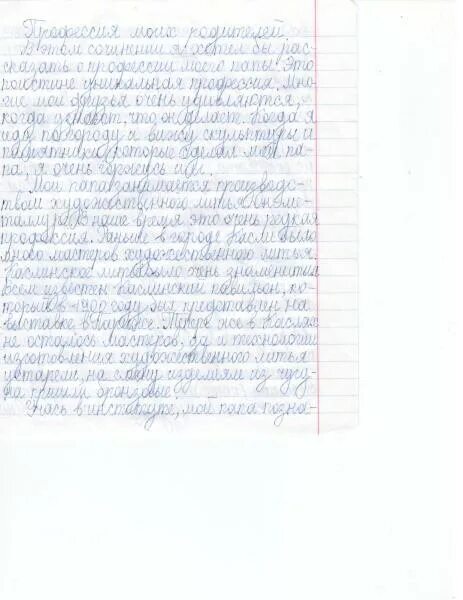 Профессия моих родителей.
В этом сочинении я хотел бы рас-
сказать о профессии моего папы. Это
поистине уникальная профессия. Мно-
гие мои друзья очень удивляются,
когда узнают, что он делает. Когда я
иду по городу и вижу скульптуры и
памятники, которые сделал мой па-
па, я очень горжусь им.
Мой папа занимается производс-
твом художественного литья. Он ме-
таллург. В наше время это очень редкая
профессия. Раньше в городе Касли было
много мастеров художественного литья.
Каслинское литье было очень знаменитым.
Всем известен Каслинский павильон, ко-
торый в 1900 году был представлен на
выставке в Париже. Теперь же в Каслях
не осталось мастеров, да и технологии
изготовления художественного литья
устарели, на смену изделиям из чугу-
на пришли бронзовые.
Учась в институте, мой папа позна-